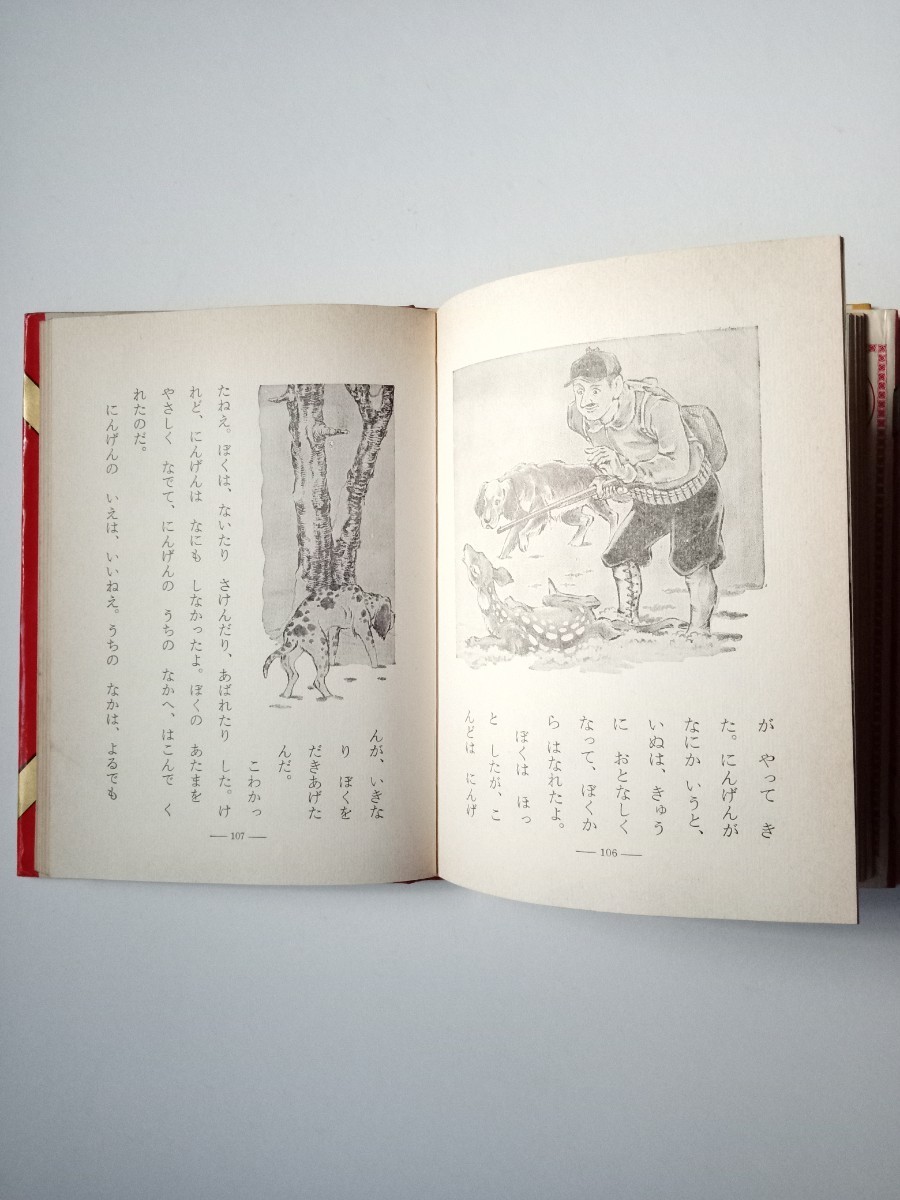 が やって き
た。にんげんが
なにか いうと、
いぬは、きゅう
に おとなしく
なって、ぼくか
ら はなれたよ。
ぼくは ほっ
と したが、こ
んどは にんげ
— 106 —
んが、いきな
り ぼくを
だきあげた
んだ。
こわかっ
たねえ。ぼくは、ないたり さけんだり、あばれたり した。け
れど、にんげんは なにも しなかったよ。ぼくの あたまを
やさしく なでて、にんげんの うちの なかへ、はこんで く
れたのだ。
にんげんの いえは、いいねえ。うちの なかは、よるでも
— 107 —